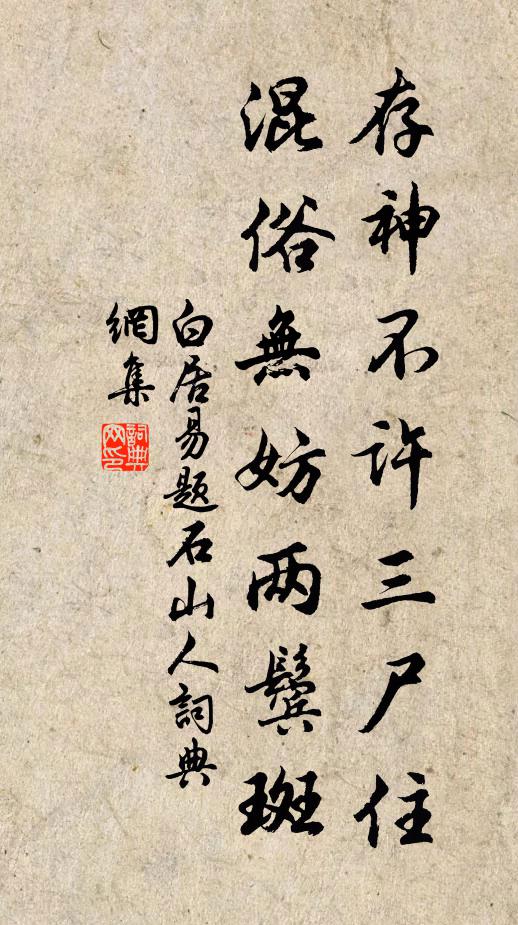 存神不许三尸住
混俗無妨两鬓斑
白居易题石山人詞典
網集
詞典网印